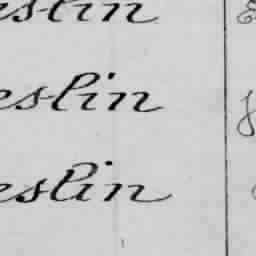 eslin
eslin
eslin